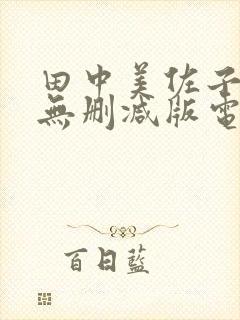 田中美佐子
無删减版電
百日藍